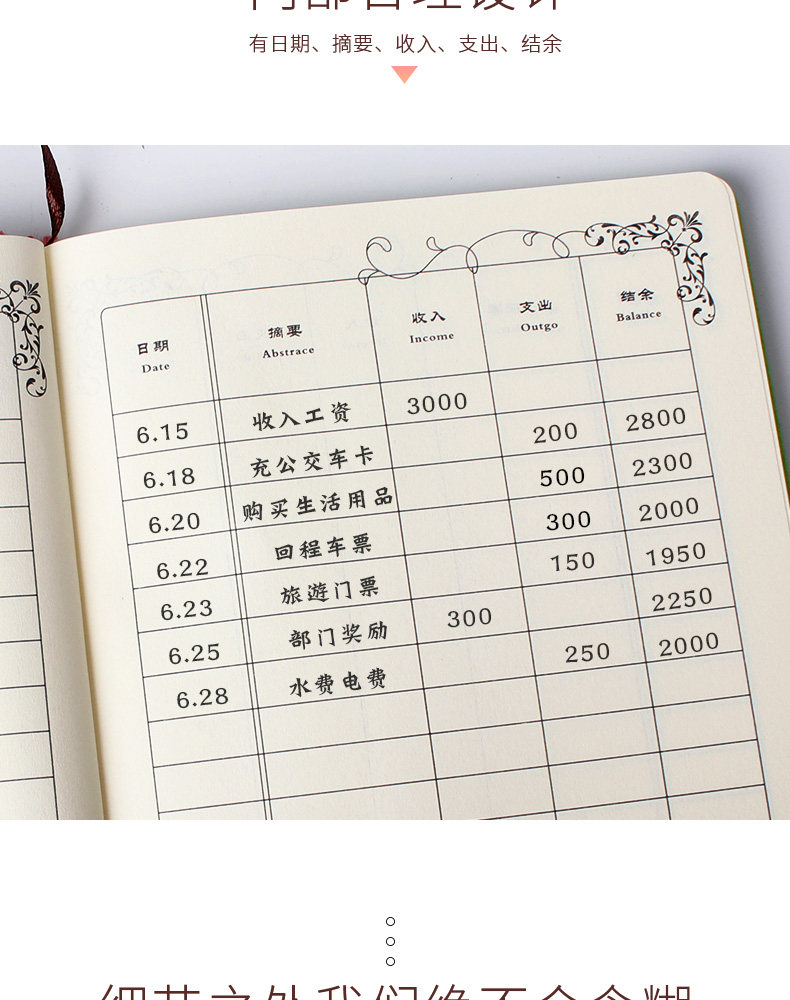 有日期、摘要、收入、支出、结余
日期 摘要 收入 支出 结余
Date Abstrace Income Outgo Balance
6.15 收入工资 3000
6.18 充公交车卡 200 2800
6.20 购买生活用品 500 2300
6.22 回程车票 300 2000
6.23 旅遊门票 150 1950
6.25 部门奖励 300 2250
6.28 水费电费 250 2000
细节之处我们绝不会含糊